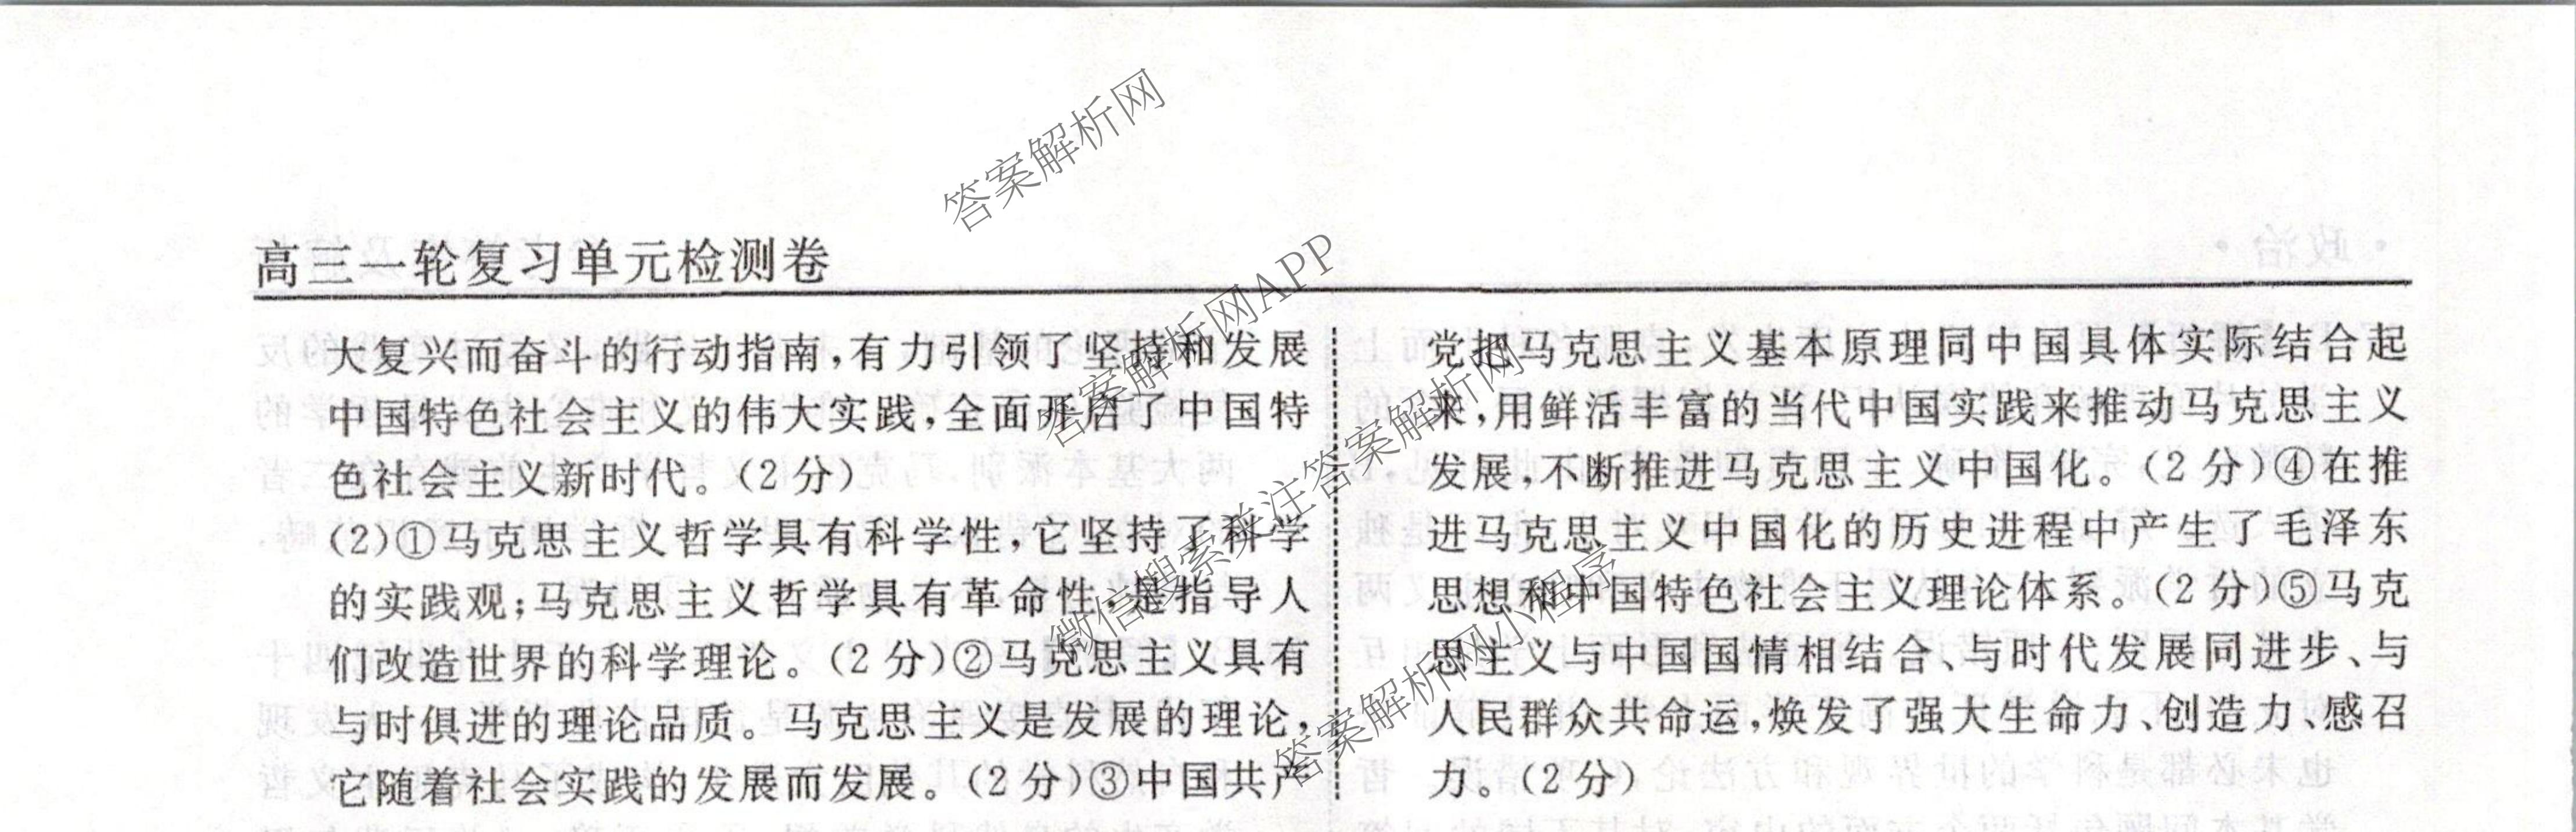 高三一轮复习单元检测卷
大复兴而奋斗的行动指南,有力引领了坚持和发展
中国特色社会主义的伟大实践,全面开启了中国特
色社会主义新时代。(2分)
(2)①马克思主义哲学具有科学性,它坚持了科学
的实践观;马克思主义哲学具有革命性,是指导人
们改造世界的科学理论。(2分)②马克思主义具有
与时俱进的理论品质。马克思主义是发展的理论,
它随着社会实践的发展而发展。(2分)③中国共产
党把马克思主义基本原理同中国具体实际结合起
来,用鲜活丰富的当代中国实践来推动马克思主义
发展,不断推进马克思主义中国化。(2分)④在推
进马克思主义中国化的历史进程中产生了毛泽东
思想和中国特色社会主义理论体系。(2分)⑤马克
思主义与中国国情相结合、与时代发展同进步、与
人民群众共命运,焕发了强大生命力、创造力、感召
力。(2分)
答案解析网
答案解析网APP
微信搜索关注答案解析网
答案解析网小程序